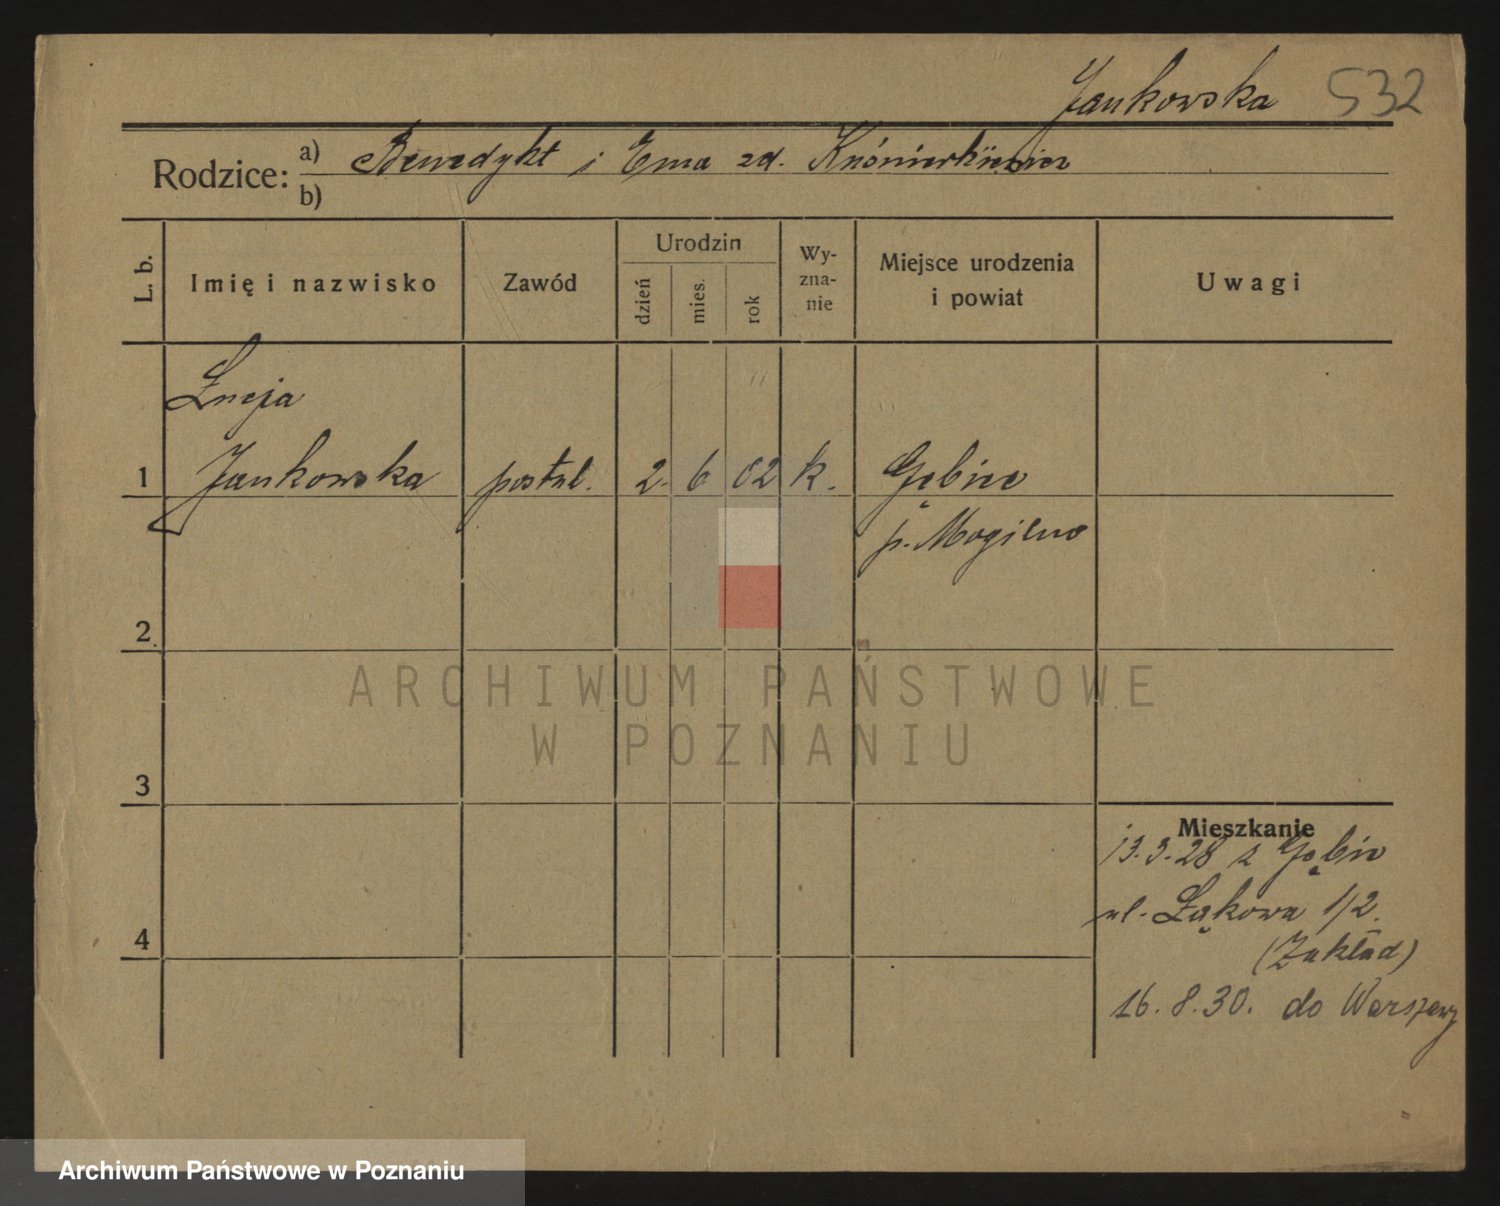 Jankowska 532
Rodzice: a) Benedykt i Ema zd.
b)
L. b. Imię i nazwisko Zawód Urodzin dzień mies. rok Wy-zna-nie Miejsce urodzenia i powiat Uwagi
Łucja
1 Jankowska postul. 2. 6 02 k. Gębice
p. Mogilno
2
ARCHIWUM PAŃSTWOWE
W POZNANIU
3
Mieszkanie
13.3.28 z Gębic
ul. Łąkowa 1/2
4 (Zakład)
16.8.30. do Warszawy
Archiwum Państwowe w Poznaniu